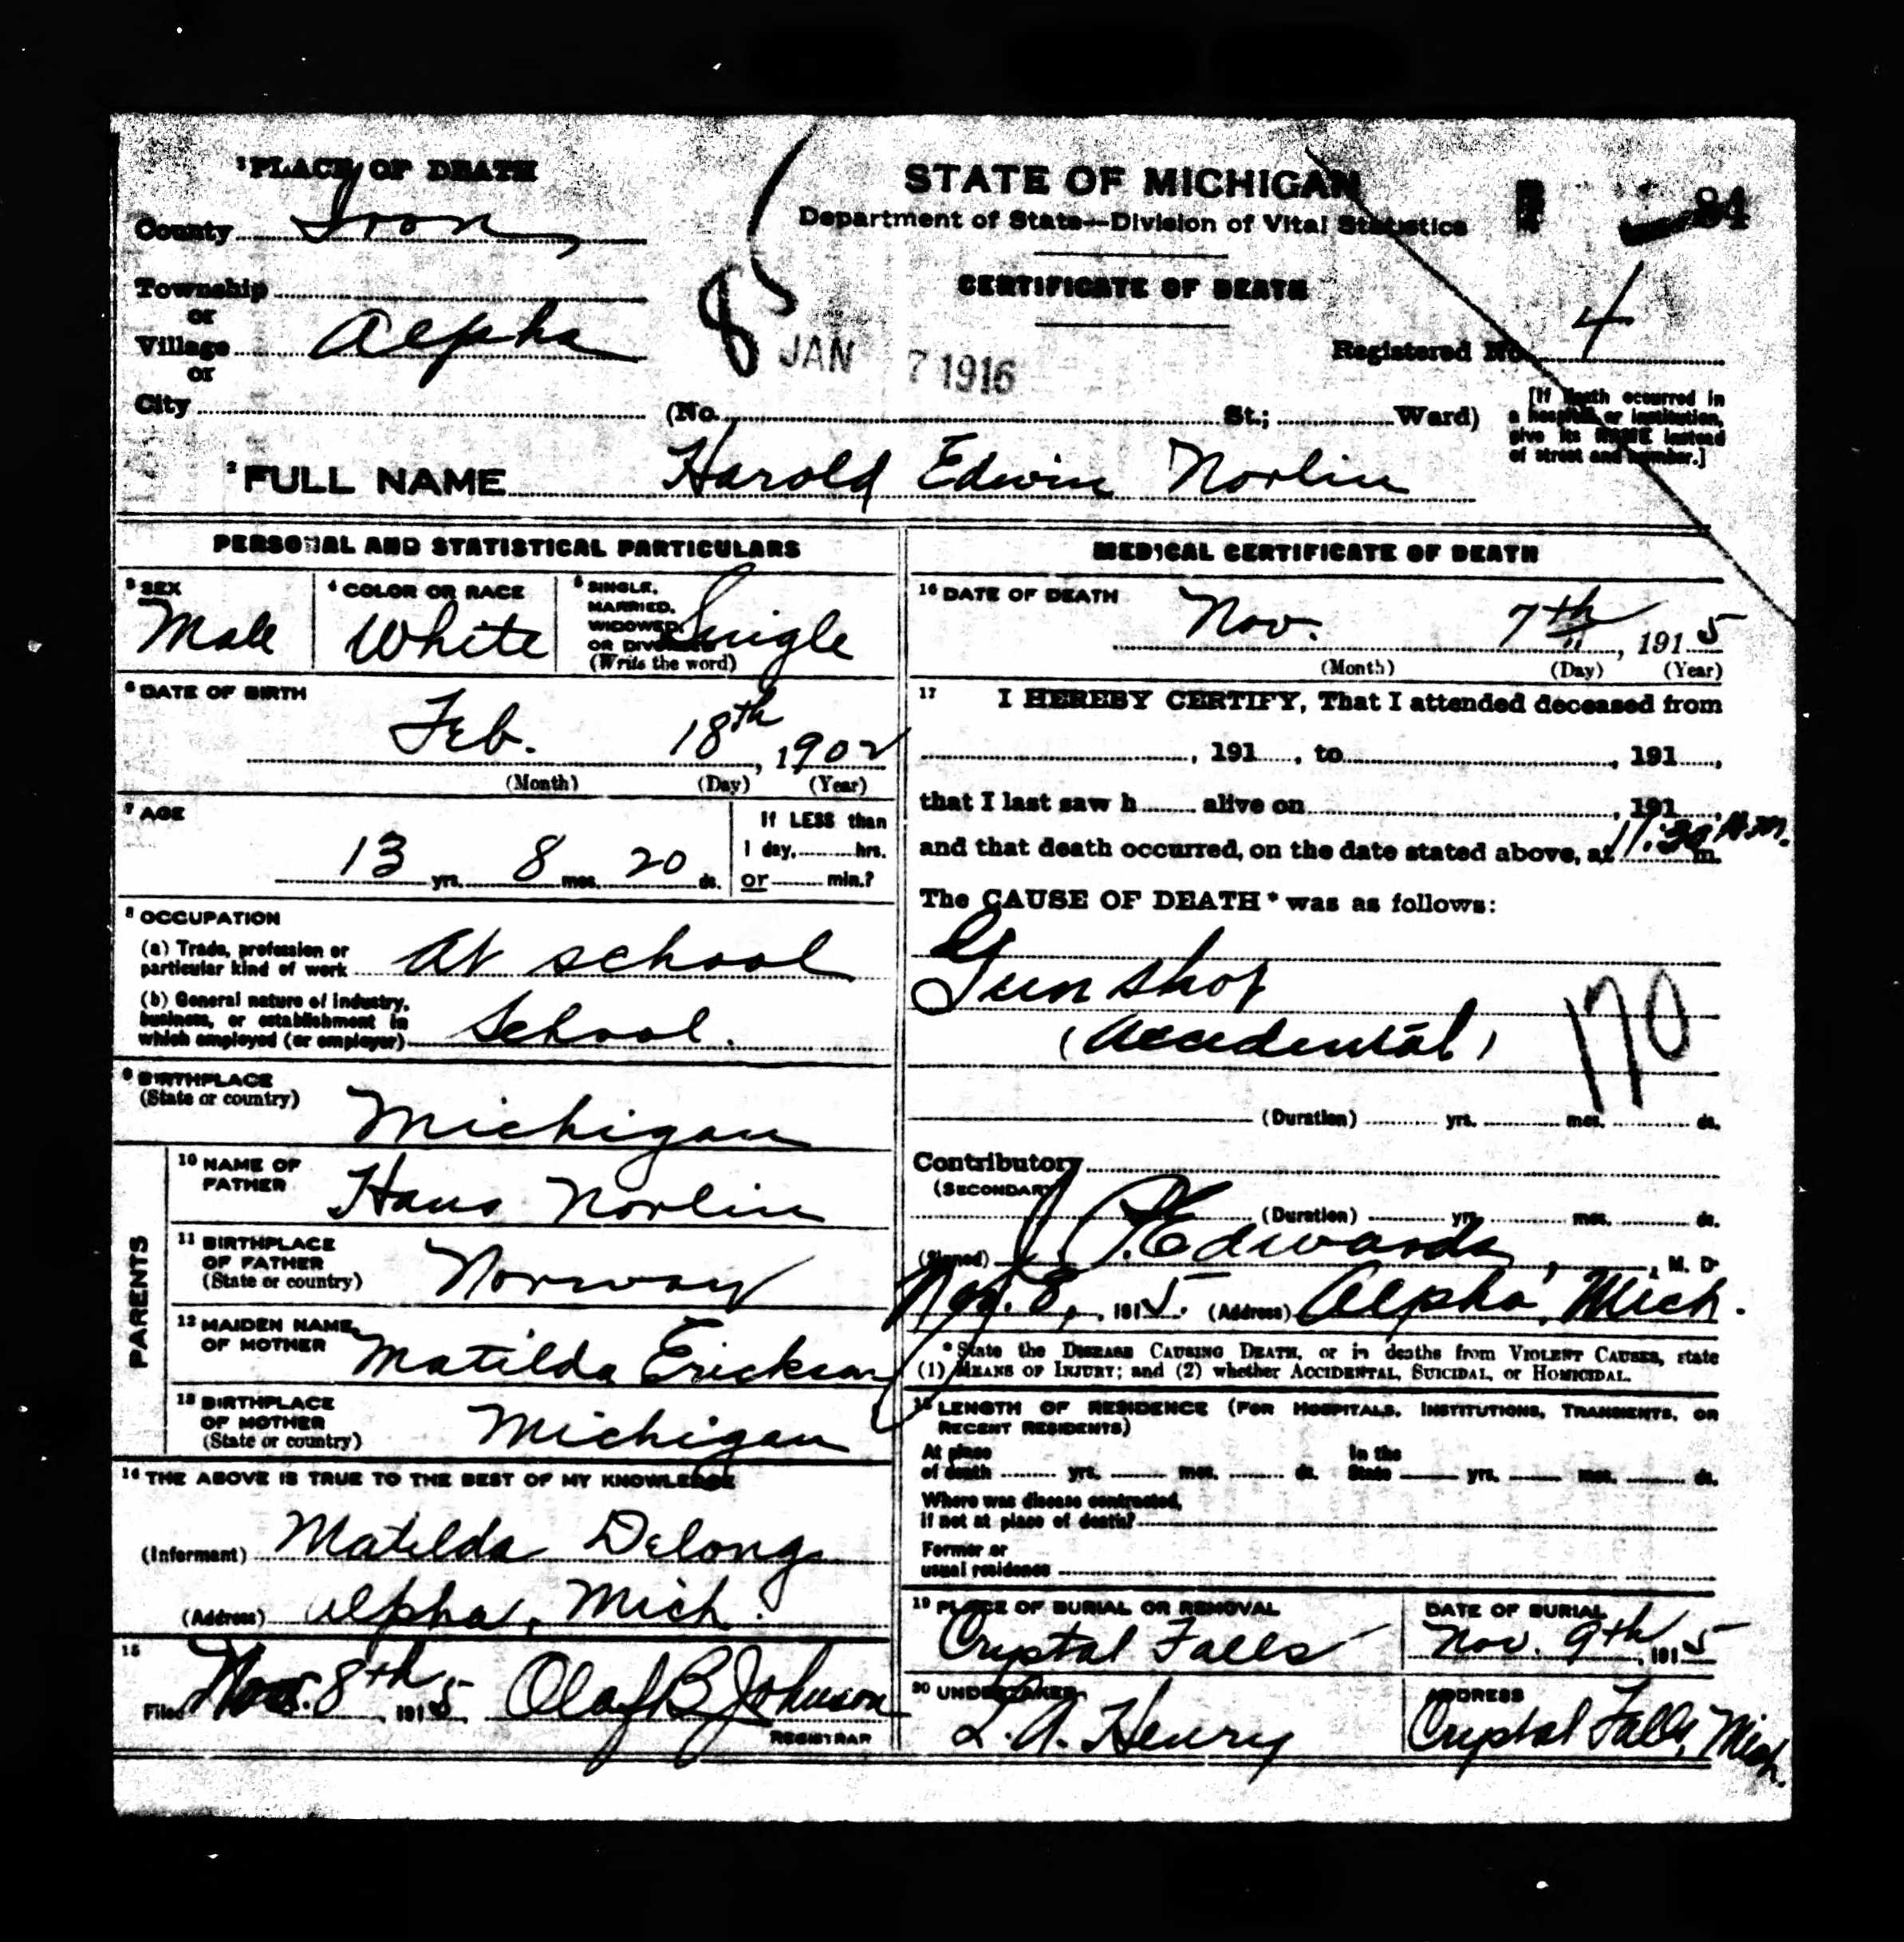 1 PLACE OF DEATH
County Iron
Township
or
Village Alpha
or
City
STATE OF MICHIGAN
Department of State—Division of Vital Statistics
CERTIFICATE OF DEATH
84
8
JAN 7 1916
Registered No. 4
(No. St.; Ward)
[If death occurred in
a hospital or institution,
give its NAME instead
of street and number.]
2 FULL NAME Harold Edwin Norlin
PERSONAL AND STATISTICAL PARTICULARS
3 SEX
Male
4 COLOR OR RACE
White
5 SINGLE,
MARRIED,
WIDOWED,
OR DIVORCED
(Write the word)
Single
6 DATE OF BIRTH
Feb. 18th, 1902
(Month) (Day) (Year)
7 AGE
13 yrs. 8 mos. 20 ds.
If LESS than
1 day, hrs.
or min.?
8 OCCUPATION
(a) Trade, profession or
particular kind of work At school
(b) General nature of industry,
business, or establishment in
which employed (or employer) School.
9 BIRTHPLACE
(State or country)
Michigan
PARENTS
10 NAME OF
FATHER
Hans Norlin
11 BIRTHPLACE
OF FATHER
(State or country)
Norway
12 MAIDEN NAME
OF MOTHER
Matilda Erickson
13 BIRTHPLACE
OF MOTHER
(State or country)
Michigan
14 THE ABOVE IS TRUE TO THE BEST OF MY KNOWLEDGE
(Informant) Matilda Delong
(Address) Alpha, Mich.
15
Filed Nov. 8th, 1915. Olaf B Johnson
REGISTRAR
MEDICAL CERTIFICATE OF DEATH
16 DATE OF DEATH
Nov. 7th, 1915
(Month) (Day) (Year)
17 I HEREBY CERTIFY, That I attended deceased from
, 191 , to , 191 ,
that I last saw h alive on , 191 ,
and that death occurred, on the date stated above, at 11:30 A.M. m.
The CAUSE OF DEATH* was as follows:
Gun shot
(Accidental)
170
(Duration) yrs. mos. ds.
Contributory
(SECONDARY)
(Duration) yrs. mos. ds.
(Signed) Edwards, M. D.
Nov. 8, 1915. (Address) Alpha, Mich.
* State the DISEASE CAUSING DEATH, or in deaths from VIOLENT CAUSES, state
(1) MEANS OF INJURY; and (2) whether ACCIDENTAL, SUICIDAL, or HOMICIDAL.
18 LENGTH OF RESIDENCE (FOR HOSPITALS, INSTITUTIONS, TRANSIENTS, OR
RECENT RESIDENTS)
At place
of death yrs. mos. ds.
In the
State yrs. mos. ds.
Where was disease contracted,
if not at place of death?
Former or
usual residence
19 PLACE OF BURIAL OR REMOVAL
Crystal Falls
DATE OF BURIAL
Nov. 9th, 1915
20 UNDERTAKER
L. A. Henry
ADDRESS
Crystal Falls, Mich.